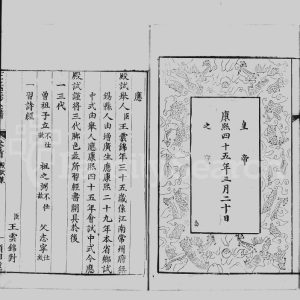 皇帝
康熙四十五年三月二十日
之
應
殿試舉人臣王雲錦年三十五歲係江南常州府無
錫縣人由增廣生應康熙二十九年本省鄉試
中式由舉人應康熙四十五年會試中式今應
殿試謹將三代脚色並所習經書開具於後
一三代
曾祖子立不仕故 祖之弼不仕故 父志寧
一習詩經
臣王雲錦對